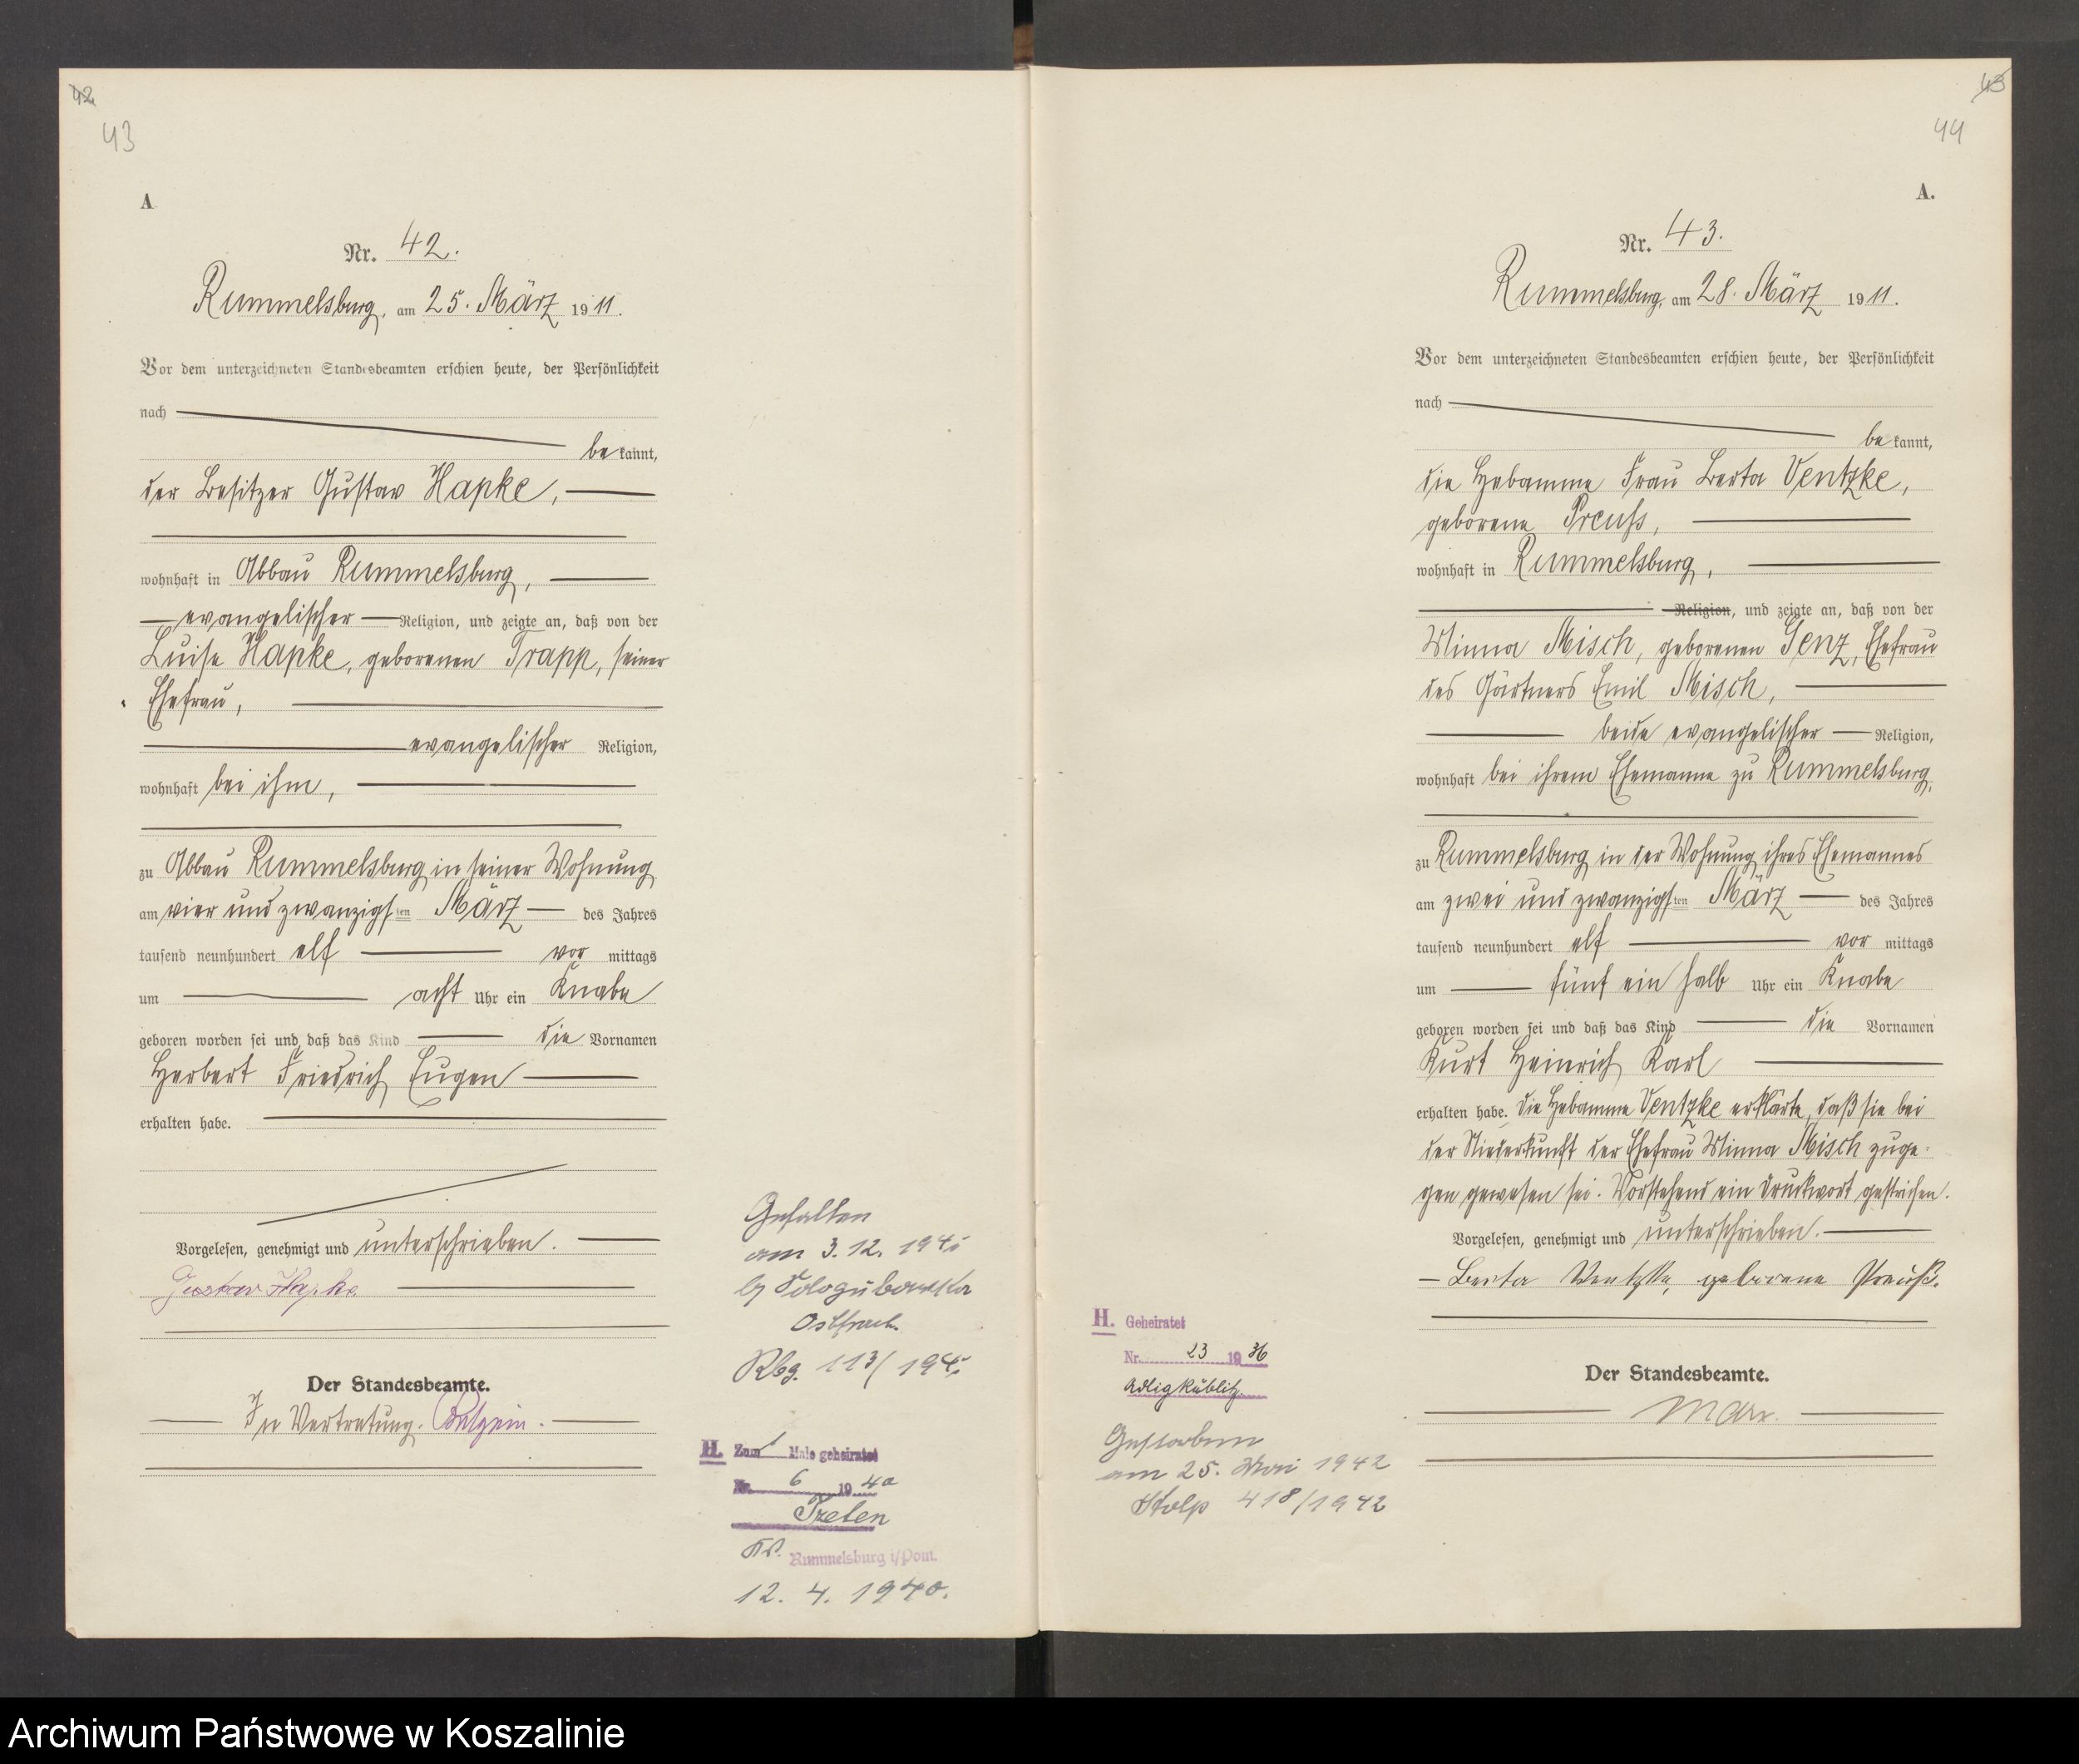 42
43
A
Nr. 42.
Rummelsburg, am 25. März 1911.
Vor dem unterzeichneten Standesbeamten erschien heute, der Persönlichkeit
nach
bekannt,
der Besitzer Gustav Hapke,
wohnhaft in Abbau Rummelsburg,
evangelischer Religion, und zeigte an, daß von der
Luise Hapke, geborenen Trapp, seiner
Ehefrau,
evangelischer Religion,
wohnhaft bei ihm,
zu Abbau Rummelsburg in seiner Wohnung
am vier und zwanzigsten März des Jahres
tausend neunhundert elf vormittags
um acht Uhr ein Knabe
geboren worden sei und daß das Kind die Vornamen
Herbert Friedrich Eugen
erhalten habe.
Vorgelesen, genehmigt und unterschrieben.
Gustav Hapke
Der Standesbeamte.
In Vertretung.
Gefallen
am 3. 12. 194
Rbg. 113/194
H. Zum 1 Male geheiratet
Nr. 6 1940
Treten
Rummelsburg i/Pom.
12. 4. 1940.
43
44
A.
Nr. 43.
Rummelsburg, am 28. März 1911.
Vor dem unterzeichneten Standesbeamten erschien heute, der Persönlichkeit
nach
bekannt,
die Hebamme Frau Berta Ventzke,
geborene Preuss,
wohnhaft in Rummelsburg,
Religion, und zeigte an, daß von der
Minna Misch, geborenen Genz, Ehefrau
des Gärtners Emil Misch,
beide evangelischer Religion,
wohnhaft bei ihrem Ehemanne zu Rummelsburg,
zu Rummelsburg in der Wohnung ihres Ehemannes
am zwei und zwanzigsten März des Jahres
tausend neunhundert elf vormittags
um fünf ein halb Uhr ein Knabe
geboren worden sei und daß das Kind die Vornamen
Kurt Heinrich Karl
erhalten habe. Die Hebamme Ventzke erklärte, daß sie bei
der Niederkunft der Ehefrau Minna Misch zuge-
gen gewesen sei. Vorstehend ein Druckwort gestrichen.
Vorgelesen, genehmigt und unterschrieben.
Berta Ventzke, geborene Preuß.
Der Standesbeamte.
Marx.
H. Geheiratet
Nr. 23 1936
Adlig Kublitz
Gestorben
am 25. Mai 1942
Stolp 418/1942
Archiwum Państwowe w Koszalinie